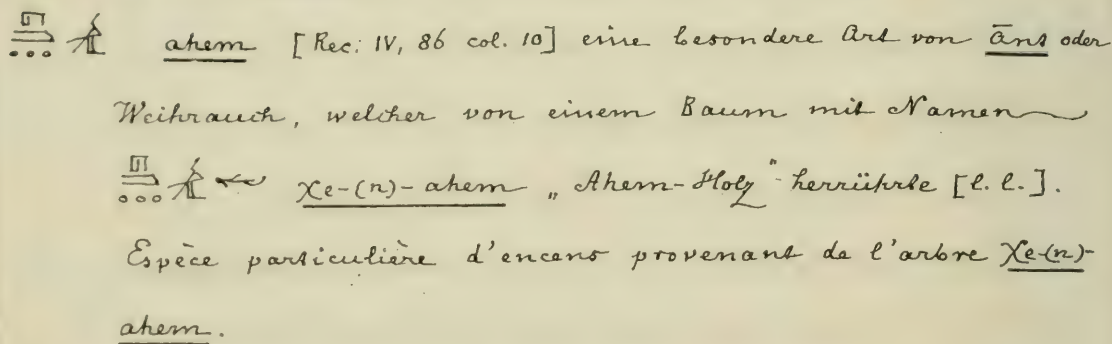 ahem [Rec: IV, 86 col. 10] eine besondere Art von āns oder
Weihrauch, welcher von einem Baum mit Namen
χe-(n)-ahem „Ahem-Holz" herrührte [l. l.].
Espèce particulière d'encens provenant de l'arbre χe-(n)-
ahem.